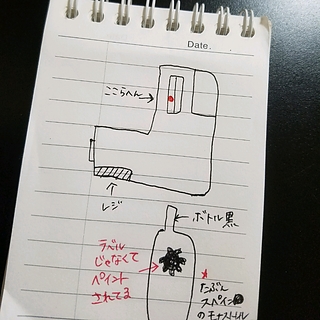 Date.
ここらへん
レジ
ボトル黒
ラベル
じゃなくて
ペイント
されてる
たぶん
スペイン
のモナストレル